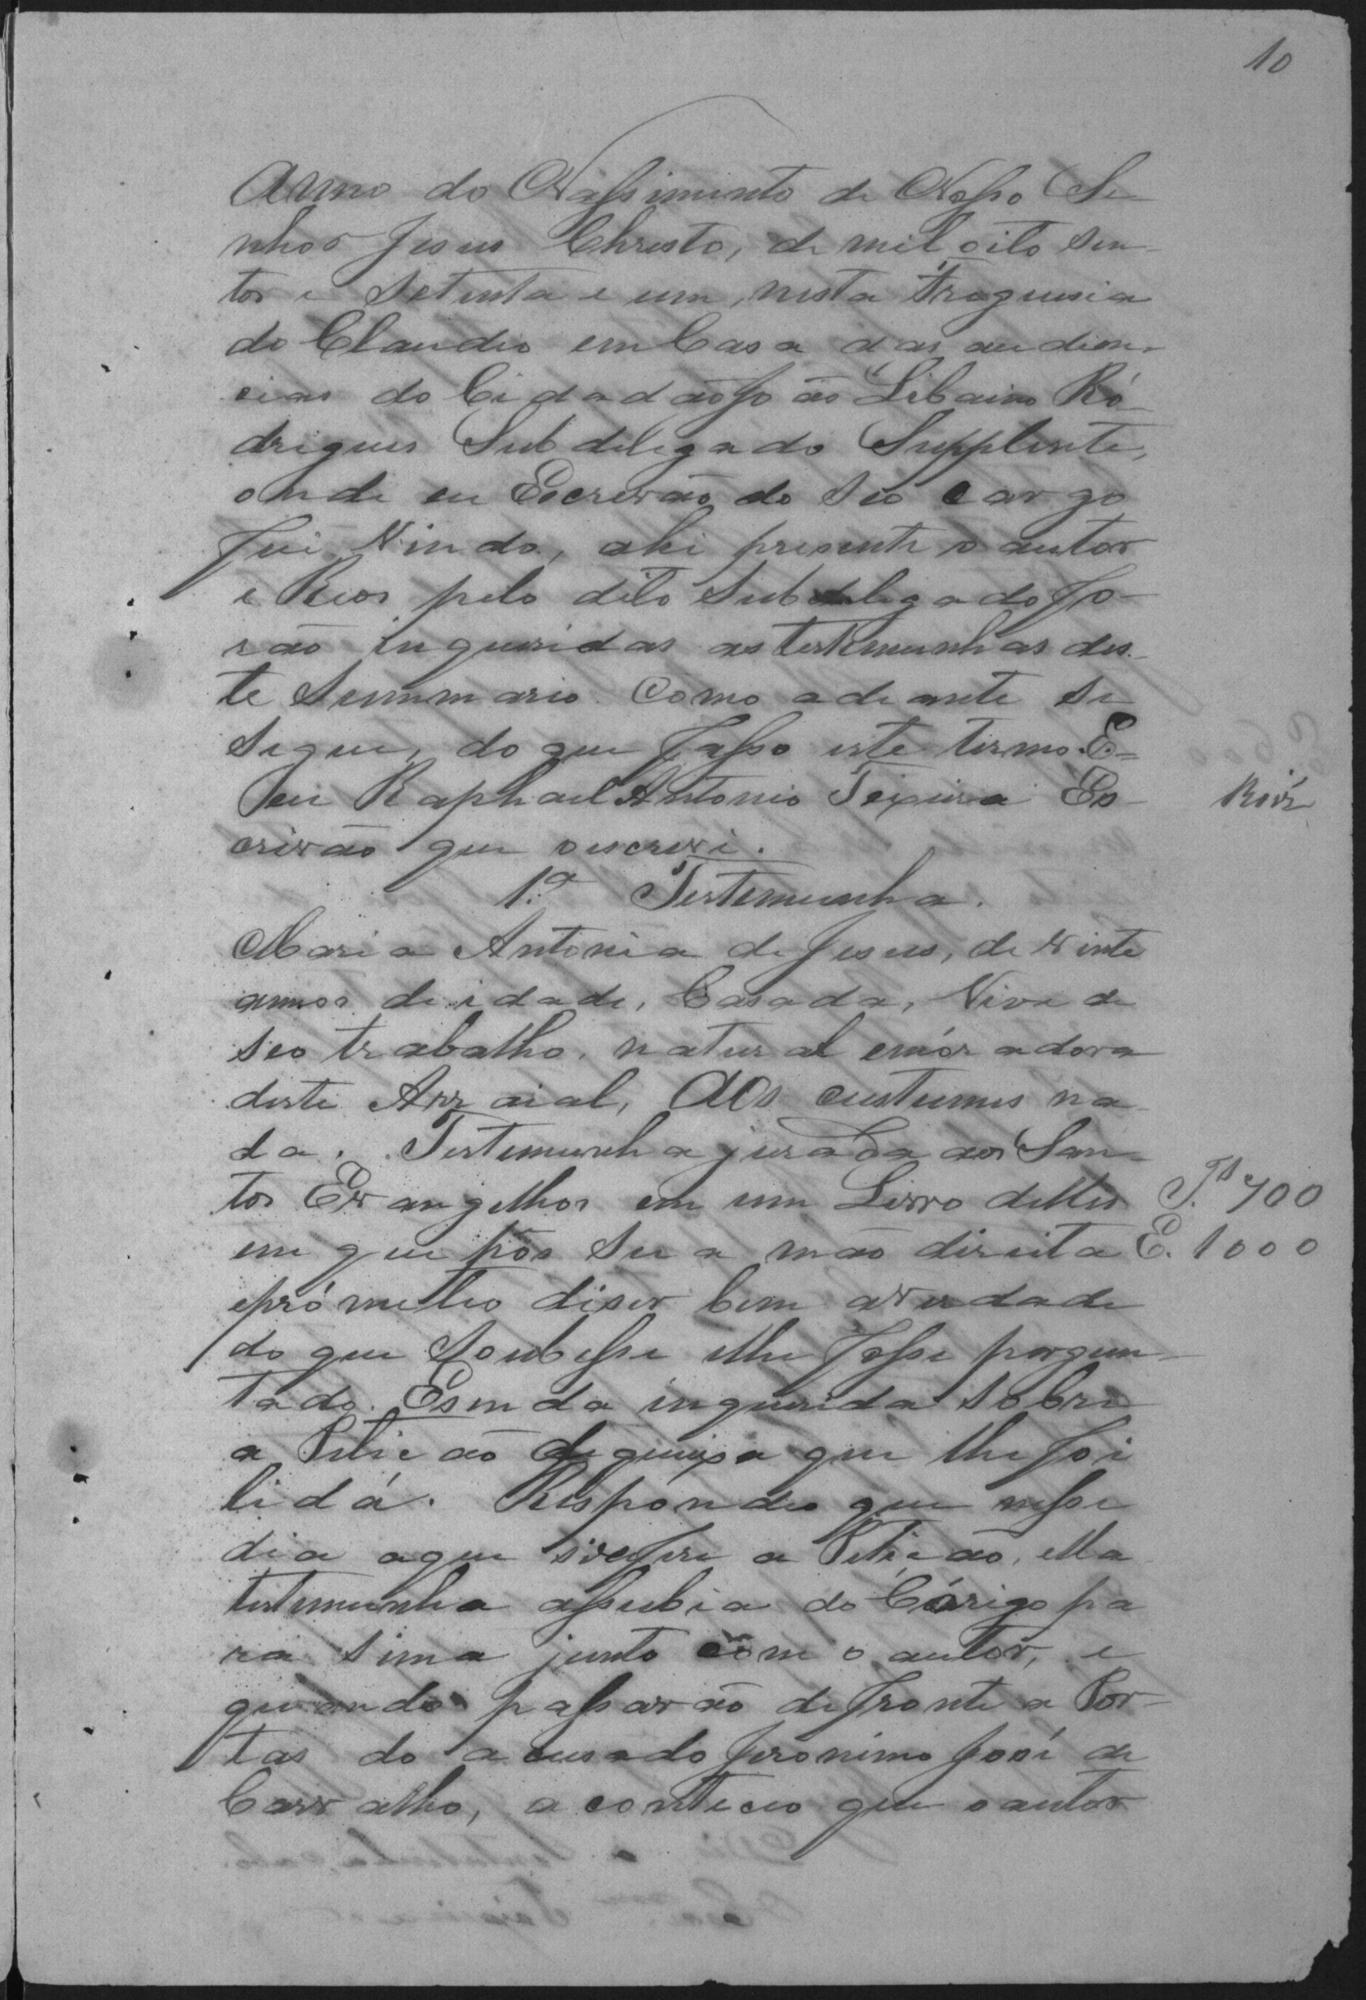 10
Anno do Nassimento de Nosso Se-
nhor Jesus Christo, de mil oito sen-
tos e setenta e um, nesta Freguesia
do Claudio em Casa das audien-
cias do Cidadão João Libaino Ró-
drigues Subdelegado Supplente,
onde eu Escrevão do seo cargo
fui Vindo, ahi presente o autor
e Reos pelo dito Subdelegado fo-
rão inqueridas as testemunhas des-
te Summario como adeante se
segue, do que fasso este termo. E-
eu Raphael Antonio Teixeira Es-
crivão que o escrevi.
1.ª Testemunha.
Maria Antonia de Jesus, de vinte
annos de idade, Casada, Vive de
seo trabalho, natural e móradora
deste Arraial, Aos custumes na-
da. Testemunha jurada aos San-
tos Evangelhos em um Livro delles
em que pôs sua mão direita
e prómeteo diser bem a verdade
do que Soubesse e lhe fosse pergun-
tado. E sendo inquerida sobre
a Petição de queixa que lhe foi
lidá. Respondeo que nesse
dia a que se refere a Petição, ella
testemunha assubia do Córigo pa
ra sima junto com o autor, e
quando passarão defronte a Por-
tas do acusado Jeronimo José de
Carvalho, aconteceo que o autor
T.ª 400
E. 1000